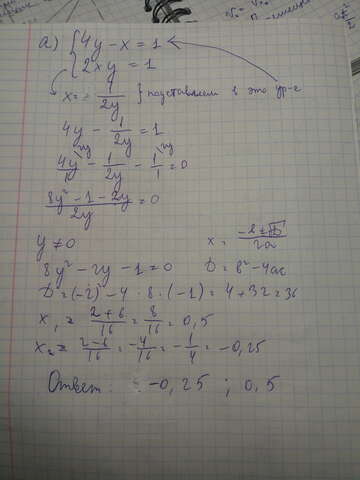 а) { 4y - x = 1
{ 2xy = 1
x = 1/2y } подставляем в это ур-е
4y - 1/2y = 1
4y/1 - 1/2y - 1/1 = 0
(8y² - 1 - 2y)/2y = 0
y ≠ 0
8y² - 2y - 1 = 0
D = (-2) - 4 · 8 · (-1) = 4 + 32 = 36
D = b² - 4ac
x₁ = (2 + 6)/16 = 8/16 = 0,5
x₂ = (2 - 6)/16 = -4/16 = -1/4 = -0,25
Ответ: -0,25 ; 0,5